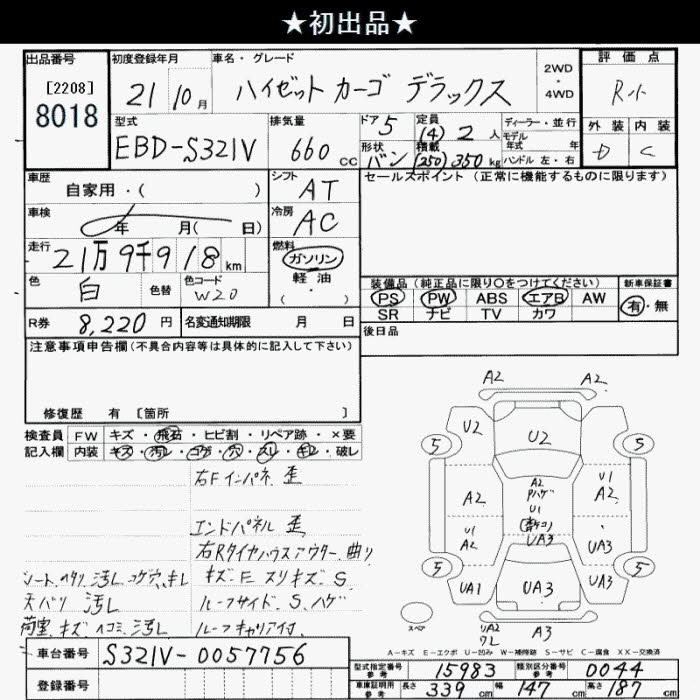 ★初出品★
出品番号 初度登録年月 車名・グレード 2WD・4WD 評価点
[2208]
8018
21 10月 ハイゼット カーゴ デラックス
外装 内装
D C
型式 排気量 ドア 5 定員 (4) 2 人 ディーラー・並行
EBD-S321V 660 cc 形状 バン 積載 (250) 350 kg モデル年式 年式 ハンドル 左・右
車歴 シフト セールスポイント (正常に機能するものに限ります)
自家用・( ) AT
車検 年 月( 日) 冷房 AC
走行 21万9千918km 燃料 ガソリン・軽油・( )
色 白 色替 色コード W20
装備品 (純正品に限り〇をつけてください) 新車保証書
PS PW ABS エアB AW 有・無
SR ナビ TV カワ
R券 8,220円 名変通知期限 月 日 後日品
注意事項申告欄(不具合内容等は具体的に記入して下さい)
修復歴 有 [箇所 ]
検査員 FW キズ・飛石・ヒビ割・リペア跡・×要
記入欄 内装 キズ・汚レ・コゲ・穴・スレ・キレ・破レ
右Fインパネ 歪
エンドパネル 歪
右Rタイヤハウスアウター 曲り
シート、ヘタリ 汚レ コゲ穴、キレ キズ.E スリキズ S
天バリ 汚レ ルーフサイド.S.ハゲ
荷室.キズ ヘコミ.汚レ ルーフキャリア付.
A2 A2
U2 U2
5 5
A2 A2 Pハゲ U1 U1 A2
U1 A2 UA3 UA3
5 5
UA1 UA3 UA3
スペア A3
A-キズ E-エクボ U-凹み W-補修跡 S-サビ C-腐食 XX-交換済
車台番号 S321V-0057756
登録番号
型式指定番号 参考 15983 類別区分番号 参考 0044
車庫証明用 参考 長さ 339 幅 147 高さ 187 cm